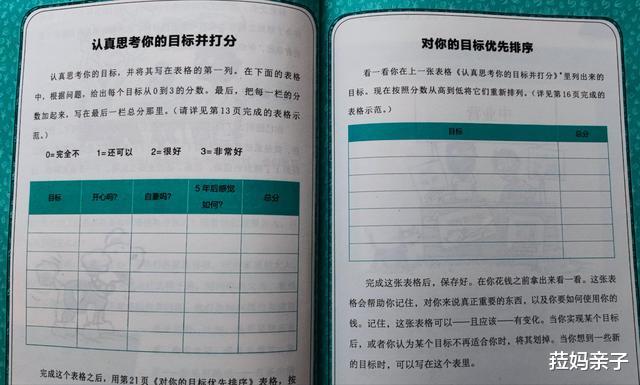 认真思考你的目标并打分
认真思考你的目标，并将其写在表格的第一列。在下面的表格
中，根据问题，给出每个目标从0到3的分数。最后，把每一栏的分
数加起来，写在最后一栏总分那里。（请详见第13页完成的表格示
范。）
0=完全不 1=还可以 2=很好 3=非常好
目标 开心吗？ 自豪吗？ 5年后感觉如何？ 总分
完成这个表格之后，用第21页《对你的目标优先排序》表格，按
对你的目标优先排序
看一看你在上一张表格《认真思考你的目标并打分》里列出来的
目标。现在按照分数从高到低将它们重新排列。（详见第16页完成的
表格示范。）
目标 总分
完成这张表格后，保存好。在你花钱之前拿出来看一看。这张表
格会帮助你记住，对你来说真正重要的东西，以及你要如何使用你的
钱。记住，这张表格可以——且应该——有变化。当你实现某个目标
后，或者你认为某个目标不再适合你时，将其划掉。当你想到一些新
的目标时，可以写在这个表里。
菈妈亲子